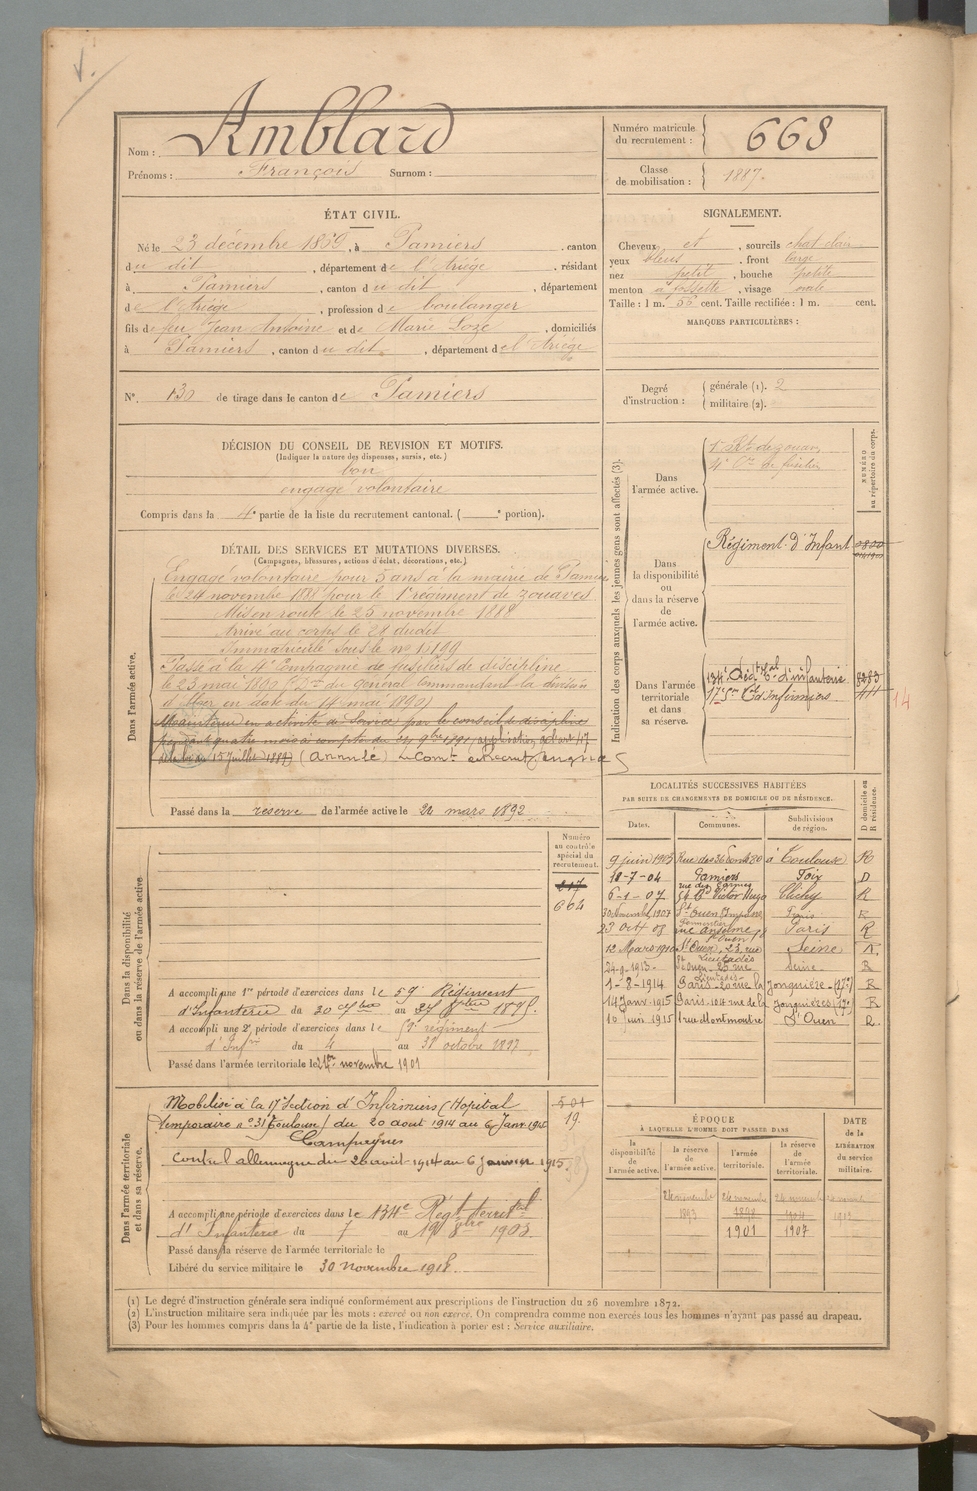 Nom : Amblard
Prénoms : François Surnom :
Numéro matricule du recrutement : 668
Classe de mobilisation : 1887.
ÉTAT CIVIL.
Né le 23 décembre 1869, à Pamiers, canton
du dit, département de l'Ariège, résidant
à Pamiers, canton du dit, département
de l'Ariège, profession de boulanger
fils de feu Jean Antoine et de Marie Loze, domiciliés
à Pamiers, canton du dit, département de l'Ariège
SIGNALEMENT.
Cheveux et, sourcils chat clair
yeux bleus, front large
nez petit, bouche petite
menton à fossette, visage ovale
Taille : 1 m. 56 cent. Taille rectifiée : 1 m. cent.
MARQUES PARTICULIÈRES :
N°. 130 de tirage dans le canton de Pamiers
Degré d'instruction : générale (1). 2
militaire (2).
DÉCISION DU CONSEIL DE REVISION ET MOTIFS.
(Indiquer la nature des dispenses, sursis, etc.)
bon
engagé volontaire
Compris dans la 4e partie de la liste du recrutement cantonal. ( e portion).
DÉTAIL DES SERVICES ET MUTATIONS DIVERSES.
(Campagnes, blessures, actions d'éclat, décorations, etc.)
Dans l'armée active.
Engagé volontaire pour 5 ans à la mairie de Pamiers
le 24 novembre 1888 pour le 1er régiment de zouaves
Mis en route le 25 novembre 1888
Arrivé au corps le 28 dudit
Immatriculé sous le no
Passé à la 4e Compagnie de fusiliers de discipline
le 23 mai 1890 (Don du général Commandant la division
d'Alger en date du 14 mai 1890)
Maintenu en activité de Service par le conseil de discipline
pendant quatre mois à compter du 9bre 1891, application de l'art 47
de la loi du 15 juillet 1889 (Annulé)
Passé dans la reserve de l'armée active le 24 mars 1892
Indication des corps auxquels les jeunes gens sont affectés (3).
NUMÉRO au répertoire du corps.
Dans l'armée active.
1er Rt de zouaves
4e Cie de fusiliers
Dans la disponibilité ou dans la réserve de l'armée active.
Régiment d'Infant
Dans l'armée territoriale et dans sa réserve.
134e Rég t tal d'infanterie 8283
17e Son d'Infirmiers
14
LOCALITÉS SUCCESSIVES HABITÉES
PAR SUITE DE CHANGEMENTS DE DOMICILE OU DE RÉSIDENCE.
Dates. Communes. Subdivisions de région. D domicile ou R résidence.
9 juin 1903 Rue des 36 Ponts 80 à Toulouse R
18-7-04 Pamiers Foix D
6-1-07 Bd Victor Hugo Clichy R
30 Novembre 1907 St Ouen Paris R
23 Oct 08 rue Anselme Paris R
St Ouen
12 Mars 1910 St Ouen, 23 rue Seine R.
29-9-1913 St Ouen 23 rue Seine R
1-8-1914 Paris 20 rue la Jonquière (17e) R
14 Janv 1915 Paris 104 rue de la Jonquière (17e) R
10 Juin 1915 1 rue Montmartre St Ouen R.
Dans la disponibilité ou dans la réserve de l'armée active
Numéro au contrôle spécial du recrutement.
217
664
A accompli une 1re période d'exercices dans le 59e Régiment
d'Infanterie du 30 au 27 1895.
A accompli une 2e période d'exercices dans le 59e régiment
d'Infrie du 4 au 31 octobre 1897
Passé dans l'armée territoriale le 24 novembre 1901
Dans l'armée territoriale et dans sa réserve.
Mobilisé à la 17e Section d'Infirmiers (Hopital
Temporaire no 31 Toulouse) du 20 aout 1914 au 6 Janv 1915
Campagnes
Contre l'allemagne du 20 août 1914 au 6 Janvier 1915.
501
19.
A accompli une période d'exercices dans le 134e Régt territal
d'Infanterie du 7 au 19 8bre 1903
Passé dans la réserve de l'armée territoriale le
Libéré du service militaire le 30 novembre 1918.
ÉPOQUE
À LAQUELLE L'HOMME DOIT PASSER DANS
DATE de la LIBÉRATION du service militaire.
la disponibilité de l'armée active. la réserve de l'armée active. l'armée territoriale. la réserve de l'armée territoriale.
24 novembre 24 novembre 24 novembre
1893 1898 1904 1913
1901 1907
(1) Le degré d'instruction générale sera indiqué conformément aux prescriptions de l'instruction du 26 novembre 1872.
(2) L'instruction militaire sera indiquée par les mots : exercé ou non exercé. On comprendra comme non exercés tous les hommes n'ayant pas passé au drapeau.
(3) Pour les hommes compris dans la 4e partie de la liste, l'indication à porter est : Service auxiliaire.